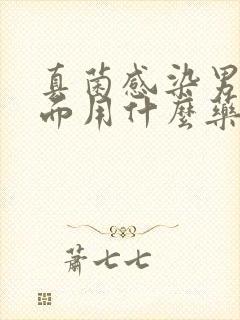 真菌感染男
而用什麼藥
蕭七七